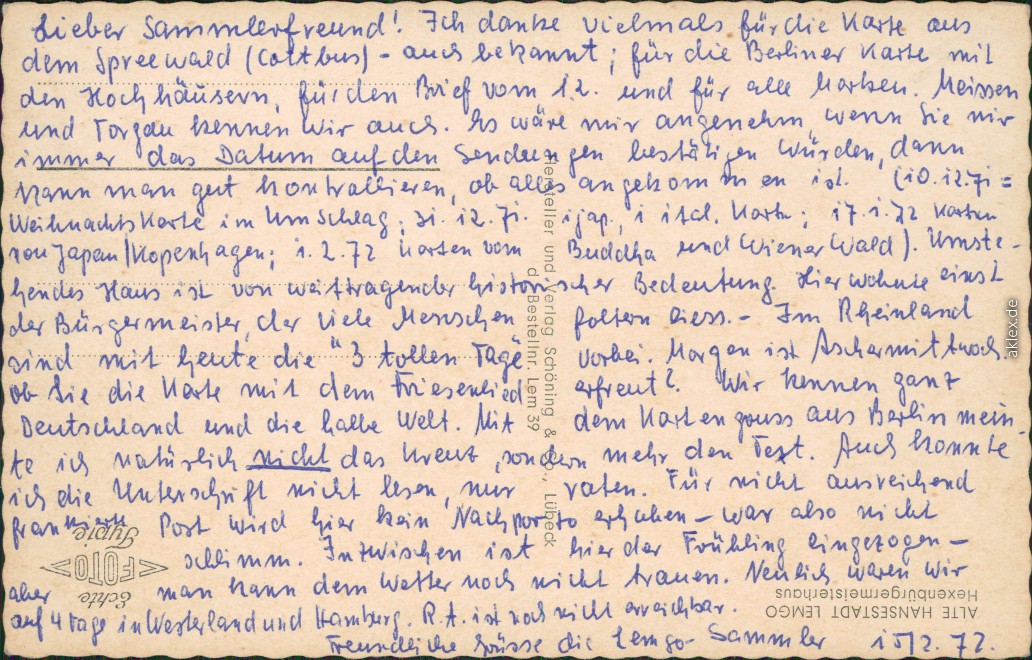 Lieber Sammlerfreund! Ich danke vielmals für die Karte aus
dem Spreewald (Cottbus) - auch bekannt; für die Berliner Karte mit
den Hochhäusern, für den Brief vom 1.2. und für alle Marken. Meissen
und Torgau kennen wir auch. Es wäre mir angenehm, wenn Sie mir
immer das Datum auf den Sendungen bestätigen würden, dann
kann man gut kontrollieren, ob alles angekommen ist. (10.12.71 =
Weihnachtskarte im Umschlag; 31.12.71. 1 jap., 1 ital. Karte; 17.1.72 Karten
von Japan/Kopenhagen; 1.2.72 Karten vom Buddha und Wiener Wald). Umste-
hendes Haus ist von weittragender historischer Bedeutung. Hier wohnte einst
der Bürgermeister, der viele Menschen foltern liess. - Im Rheinland
sind mit heute die "3 tollen Tage" vorbei. Morgen ist Aschermittwoch.
ob Sie die Karte mit dem Friesenlied erfreut? Wir kennen ganz
Deutschland und die halbe Welt. Mit dem Kartengruss aus Berlin mein-
te ich natürlich nicht das Kreuz, sondern mehr den Text. Auch konnte
ich die Unterschrift nicht lesen, nur raten. Für nicht ausreichend
frankierte Post wird hier kein Nachporto erhoben - war also nicht
schlimm. Inzwischen ist hier der Frühling eingezogen -
aber man kann dem Wetter noch nicht trauen. Neulich waren wir
auf 4 Tage in Westerland und Hamburg. R.A. ist noch nicht erreichbar.
Freundliche Grüsse die Lemgo-Sammler 15/2.72.
Hersteller und Verlag Schöning & Co., Lübeck
Bestellnr. Lem 39
Echte
FOTO
Typie
ALTE HANSESTADT LEMGO
Hexenbürgermeisterhaus
aklex.de